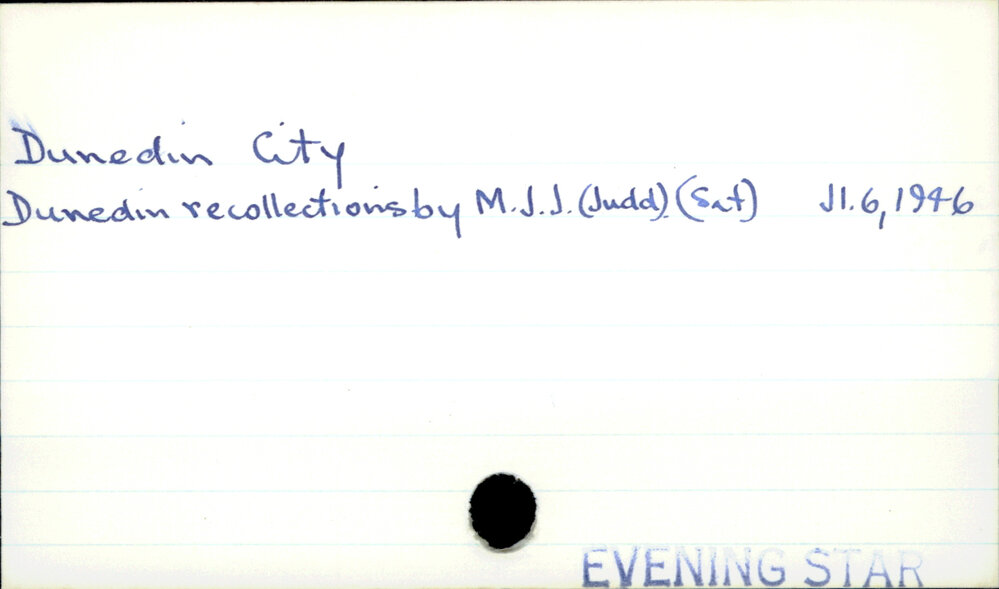 Dunedin City
Dunedin recollections by M.J.J. (Judd) (Sat) Jl. 6, 1946
EVENING STAR